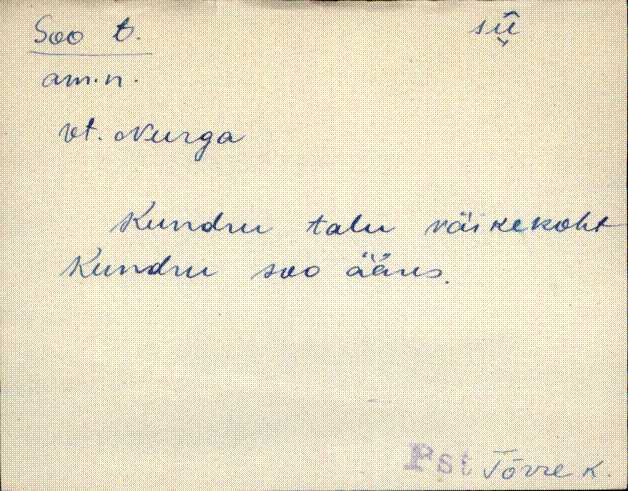 Soo t. sṳ̂
am.n.
vt. Nurga
Kundru talu väikekoht
Kundru soo ääres.
Pst Tõrre k.